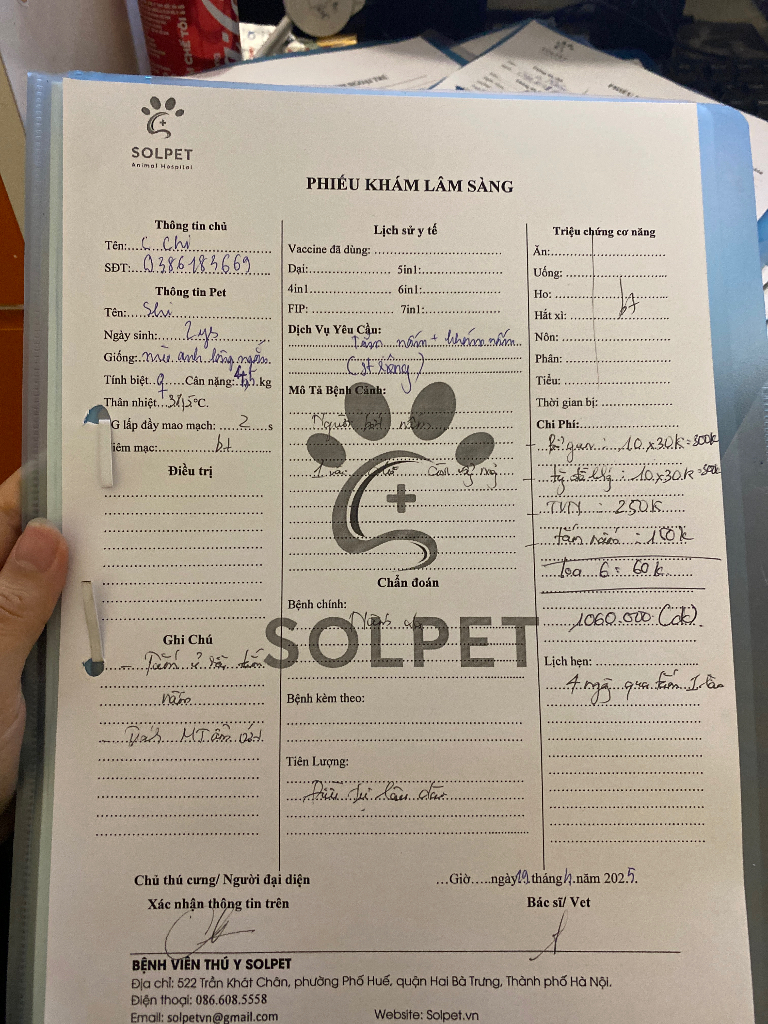 SOLPET
Animal Hospital
PHIẾU KHÁM LÂM SÀNG
Thông tin chủ
Tên: C Chi
SĐT: 0386183669
Thông tin Pet
Tên: Shi
Ngày sinh: 2ys
Giống: mèo anh lông ngắn
Tính biệt ♀ Cân nặng: kg
Thân nhiệt °C.
G lấp đầy mao mạch: 2 s
iêm mạc: bt
Điều trị
Ghi Chú
- Tiến tắm
nấm
- MT ẩm ướt
Lịch sử y tế
Vaccine đã dùng:
Dại: 5in1:
4in1 6in1:
FIP: 7in1:
Dịch Vụ Yêu Cầu:
Tắm nấm + khám nấm
Mô Tả Bệnh Cảnh:
Người nấm
SOLPET
Chẩn đoán
Bệnh chính:
Bệnh kèm theo:
Tiên Lượng:
Điều trị lâu dài
Triệu chứng cơ năng
Ăn:
Uống:
Ho:
Hắt xì: bt
Nôn:
Phân:
Tiểu:
Thời gian bị:
Chi Phí:
- Bổ gan: 10x30k=300k
- : 10x30k=300k
- : 250k
- tắm nấm : 150k
loa 6 = 60k
1060.000 (ck).
Lịch hẹn:
4 ngày qua tắm 1 lần
Chủ thú cưng/ Người đại diện
Xác nhận thông tin trên
...Giờ.....ngày 19 tháng 4 năm 2025.
Bác sĩ/ Vet
BỆNH VIỆN THÚ Y SOLPET
Địa chỉ: 522 Trần Khát Chân, phường Phố Huế, quận Hai Bà Trưng, Thành phố Hà Nội.
Điện thoại: 086.608.5558
Email: solpetvn@gmail.com Website: Solpet.vn